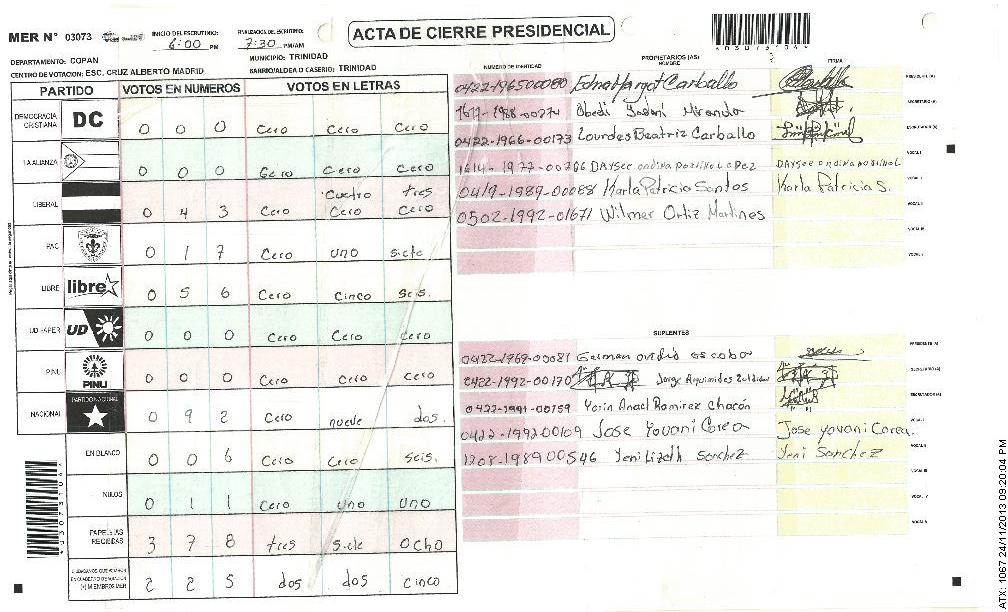 MER N° 03073
INICIO DEL ESCRUTINIO: 6:00 PM
FINALIZACION DEL ESCRUTINIO: 7:30 PM/AM
ACTA DE CIERRE PRESIDENCIAL
DEPARTAMENTO: COPAN
MUNICIPIO: TRINIDAD
CENTRO DE VOTACION: ESC. CRUZ ALBERTO MADRID
BARRIO/ALDEA O CASERIO: TRINIDAD
PARTIDO VOTOS EN NUMEROS VOTOS EN LETRAS
DEMOCRACIA CRISTIANA DC 0 0 0 Cero Cero Cero
LA ALIANZA 0 0 0 Cero Cero Cero
Cuatro tres
LIBERAL 0 4 3 Cero Cero Cero
PAC 0 1 7 Cero uno siete
LIBRE libre 0 5 6 Cero Cinco Seis.
UD-FAPER UD 0 0 0 Cero Cero Cero
PINU PINU 0 0 0 Cero Cero Cero
NACIONAL PARTIDO NACIONAL 0 9 2 Cero nueve dos.
EN BLANCO 0 0 6 Cero Cero Seis.
NULOS 0 1 1 Cero Uno Uno
PAPELETAS RECIBIDAS 3 7 8 tres siete ocho
CIUDADANOS QUE VOTARON EN CUADERNO DE VOTACION (+) MIEMBROS MER 2 2 5 dos dos cinco
PROPIETARIOS (AS)
NUMERO DE IDENTIDAD NOMBRE FIRMA
0422-196500080 Edna Margot Carballo PRESIDENTE (A)
Obedi Mirando SECRETARIO (A)
0422-1966-00173 Lourdes Beatriz Carballo ESCRUTADOR (A)
1614-1977-00286 DAYSEE ondina PORTILLO LOPEZ DAYSEE ondina PORTILLO L VOCAL I
0419-1989-00088 Karla Patricia Santos Karla Patricia S. VOCAL II
0502-1992-01671 Wilmer Ortiz Martines
SUPLENTES
0422-1969-00081 German ovidio escobar PRESIDENTE (A)
0422-1992-00170 Jorge Arquimides SECRETARIO (A)
0422-1991-00759 Yorin Anael Ramirez Chacón ESCRUTADOR (A)
0422-199200109 Jose Yovani Corea Jose Yovani Corea.
1208-1989 00546 Yeni Lizeth Sanchez Yeni Sanchez
ATX: 1067 24/11/2013 09:20:04 PM